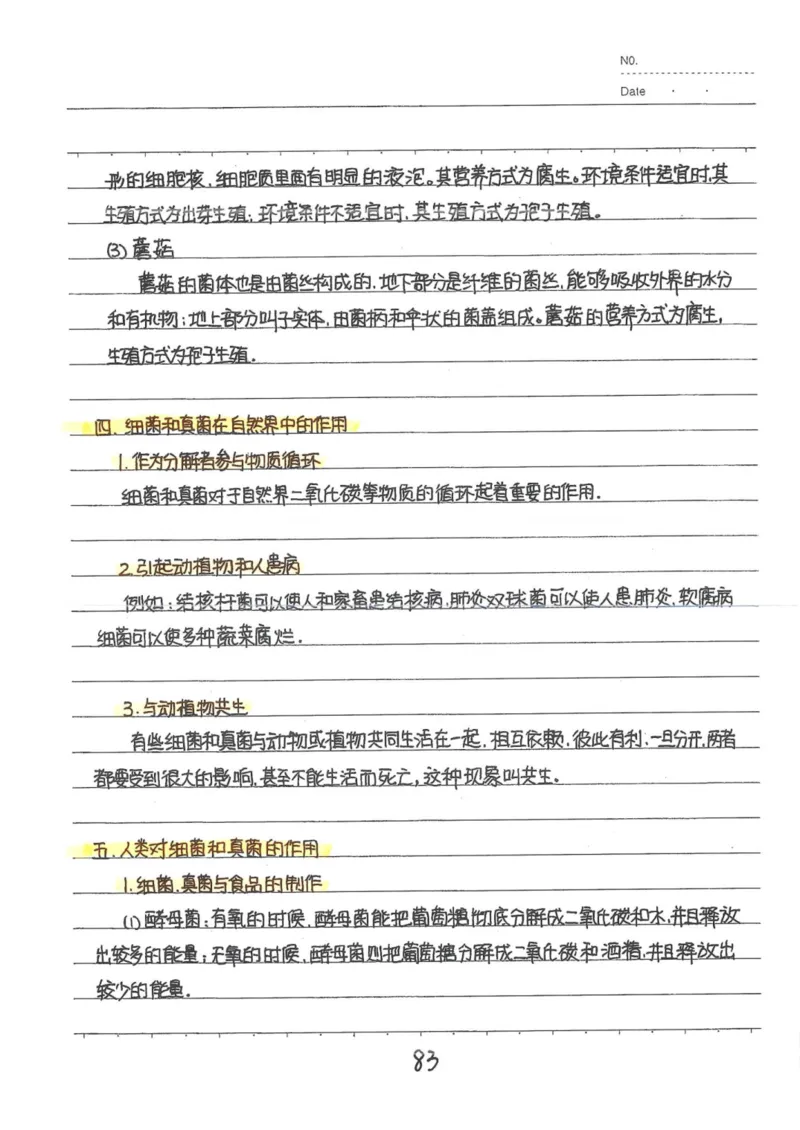 NO.
Date
形的细胞核，细胞质里面有明显的液泡。其营养方式为腐生。环境条件适宜时，其
生殖方式为出芽生殖；环境条件不适宜时，其生殖方式为孢子生殖。
(3) 蘑菇
蘑菇的菌体也是由菌丝构成的，地下部分是纤维的菌丝，能够吸收外界的水分
和有机物；地上部分叫子实体，由菌柄和伞状的菌盖组成。蘑菇的营养方式为腐生，
生殖方式为孢子生殖．
四、细菌和真菌在自然界中的作用
1.作为分解者参与物质循环
细菌和真菌对于自然界二氧化碳等物质的循环起着重要的作用．
2.引起动植物和人患病
例如：结核杆菌可以使人和家畜患结核病，肺炎双球菌可以使人患肺炎，软腐病
细菌可以使多种蔬菜腐烂．
3.与动植物共生
有些细菌和真菌与动物或植物共同生活在一起，相互依赖，彼此有利，一旦分开，两者
都要受到很大的影响，甚至不能生活而死亡，这种现象叫共生。
五.人类对细菌和真菌的作用
1.细菌.真菌与食品的制作
(1)酵母菌：有氧的时候，酵母菌能把葡萄糖彻底分解成二氧化碳和水，并且释放
出较多的能量；无氧的时候，酵母菌则把葡萄糖分解成二氧化碳和酒精，并且释放出
较少的能量．
83